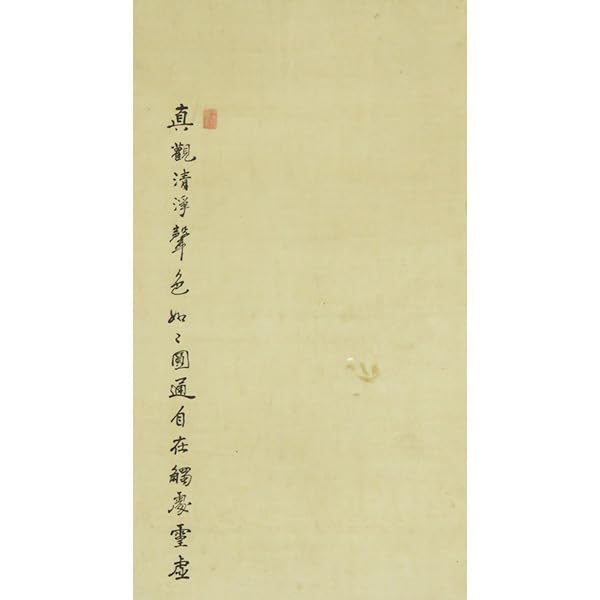 真觀清淨聲色如〻圓通自在觸處靈虛